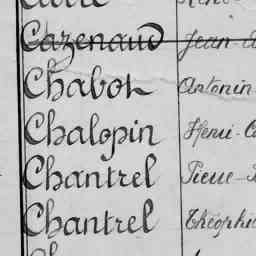 Cazenaud Jean-
Chabot Antonin
Chalopin Henri-
Chantrel Pierre-
Chantrel Théophi